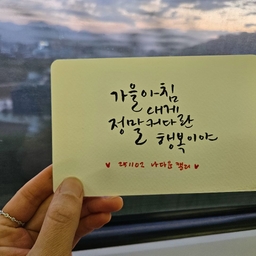 가을아침
내게
정말 커다란
행복이야
♥ 241102 나다운 캘리 ♥